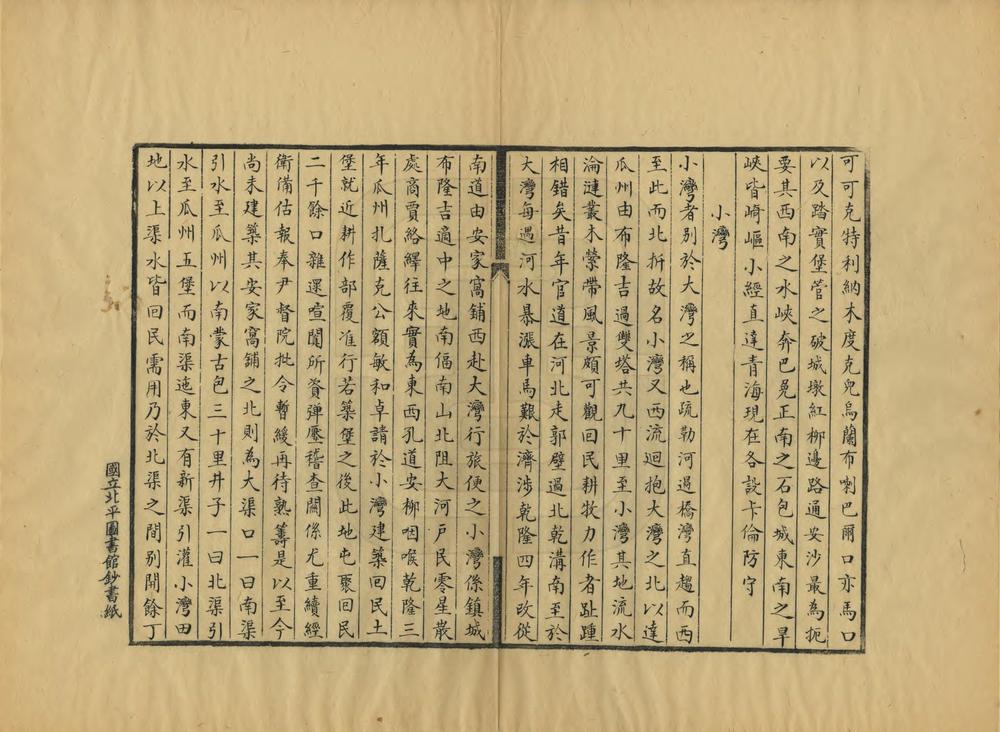 可可克特利納木度克兒烏蘭布喇巴爾口亦馬口
以及踏實堡營之破城墩紅柳邊路通安沙最為扼
要其西南之水峽奔巴兎正南之石包城東南之旱
峽皆崎嶇小經直達青海現在各設卡倫防守
小灣
小灣者别於大灣之稱也疏勒河過橋灣直趨而西
至此而北折故名小灣又西流迴抱大灣之北以達
瓜州由布隆吉過雙塔共九十里至小灣其地流水
淪漣叢木縈帶風景頗可觀回民耕牧力作者趾踵
相錯矣昔年官道在河北走郭壁過北乾溝南至於
大灣每遇河水暴漲車馬艱於濟涉乾隆四年改從
南道由安家窩鋪西赴大灣行旅便之小灣係鎮城
布隆吉適中之地南偪南山北阻大河戶民零星散
處商賈絡繹往來實為東西孔道安柳咽喉乾隆三
年瓜州扎薩克公額敏和卓請於小灣建築回民土
堡就近耕作部覆准行若築堡之後此地屯聚回民
二千餘口雜遝喧闐所資彈壓稽查關係尤重續經
衛備估報奉尹督院批令暫緩再待熟籌是以至今
尚未建築其安家窩鋪之北則為大渠口一曰南渠
引水至瓜州以南蒙古包三十里井子一曰北渠引
水至瓜州五堡而南渠迤東又有新渠引灌小灣田
地以上渠水皆回民需用乃於北渠之間别開餘丁
國立北平圖書館鈔書紙